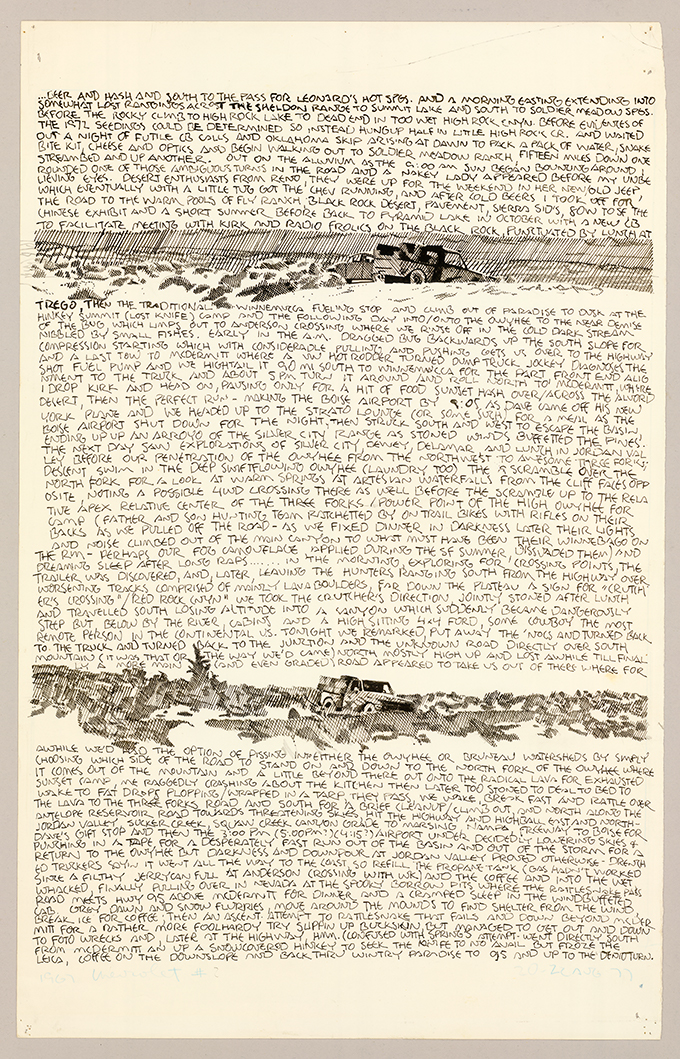 ...BEER AND HASH AND SOUTH TO THE PASS FOR LEONARD'S HOT SPGS. AND A MORNING EASTING EXTENDING INTO
SOMEWHAT LOST RANGINGS ACROST THE SHELDON RANGE TO SUMMIT LAKE AND SOUTH TO SOLDIER MEADOW SPGS.
BEFORE THE ROCKY CLIMB TO HIGH ROCK LAKE TO DEAD END IN TOO WET HIGH ROCK CNYN. BEFORE EVIDENCES OF
THE 1972 SEEDINGS COULD BE DETERMINED SO INSTEAD HUNG UP HALF IN LITTLE HIGH ROCK CR. AND WAITED
OUT A NIGHT OF FUTILE CB CALLS AND OKLAHOMA SKIP ARISING AT DAWN TO PACK A PACK OF WATER, SNAKE
BITE KIT, CHEESE AND OPTICS AND BEGIN WALKING OUT TO SOLDIER MEADOW RANCH, FIFTEEN MILES DOWN ONE
STREAMBED AND UP ANOTHER. OUT ON THE ALLUVIUM AS THE 9:00 AM SUN BEGAN BOUNCING AROUND I
ROUNDED ONE OF THOSE AMBIGUOUS TURNS IN THE ROAD AND A NAKEY LADY APPEARED BEFORE MY UNBE
LIEVING EYES. DESERT ENTHUSIASTS FROM RENO, THEY WERE UP FOR THE WEEKEND IN HER NEW/OLD JEEP
WHICH EVENTUALLY WITH A LITTLE TUG GOT THE CHEV RUNNING, AND AFTER COLD BEERS I TOOK OFF FOR
THE ROAD TO THE WARM POOLS OF FLY RANCH, BLACK ROCK DESERT, PAVEMENT, SIERRA SID'S, 80W TO SF THE
CHINESE EXHIBIT AND A SHORT SUMMER BEFORE BACK TO PYRAMID LAKE IN OCTOBER WITH A NEW CB
TO FACILITATE MEETING WITH KIRK AND RADIO FROLICS ON THE BLACK ROCK, PUNCTUATED BY LUNCH AT
TREGO, THEN THE TRADITIONAL WINNEMUCCA FUELING STOP AND CLIMB OUT OF PARADISE TO DUSK AT THE
HINKEY SUMMIT (LOST KNIFE) CAMP AND THE FOLLOWING DAY INTO/ONTO THE OWYHEE TO THE NEAR DEMISE
OF THE BUG, WHICH LIMPS OUT TO ANDERSON CROSSING WHERE WE RINSE OFF IN THE COLD DARK STREAM
NIBBLED BY SMALL FISHES. EARLY IN THE A.M. DRAGGED BUG BACKWARDS UP THE SOUTH SLOPE FOR
COMPRESSION STARTING WHICH WITH CONSIDERABLE PULLING AND PUSHING GETS US OVER TO THE HIGHWAY
AND A LAST TOW TO MCDERMITT WHERE A VW HOT RODDER TURNED DUMP TRUCK JOCKEY DIAGNOSES THE
SHOT FUEL PUMP AND WE HIGHTAIL IT 90 MI SOUTH TO WINNEMUCCA FOR THE PART, FRONT END ALIG
NMENT TO THE TRUCK AND ABOUT 5 PM TURN IT AROUND AND ROLL NORTH TO MCDERMITT, WHERE
I DROP KIRK AND HEAD ON, PAUSING ONLY FOR A HIT OF FOOD SUNSET HASH OVER/ACROSS THE ALVORD
DESERT, THEN THE PERFECT RUN - MAKING THE BOISE AIRPORT BY 9:05 AS DAVE CAME OFF HIS NEW
YORK PLANE AND WE HEADED UP TO THE STRATO LOUNGE (OR SOME SUCH) FOR A MEAL AS THE
BOISE AIRPORT SHUT DOWN FOR THE NIGHT, THEN STRUCK SOUTH AND WEST TO ESCAPE THE BASIN,
ENDING UP UP AN ARROYO OF THE SILVER CITY RANGE AS STONED WINDS BUFFETTED THE PINES.
THE NEXT DAY SAW EXPLORATIONS OF SILVER CITY, DEWEY, DELAMAR AND LUNCH IN JORDAN VAL
LEY BEFORE OUR PENETRATION OF THE OWYHEE FROM THE NORTHWEST TO AN AWESOME THREE FORKS
DESCENT, SWIM IN THE DEEP SWIFTFLOWING OWYHEE (LAUNDRY TOO) THE SCRAMBLE OVER THE
NORTH FORK FOR A LOOK AT WARM SPRINGS AT ARTESIAN WATERFALLS FROM THE CLIFF FACES OPP
OSITE, NOTING A POSSIBLE 4WD CROSSING THERE AS WELL BEFORE THE SCRAMBLE UP TO THE RELA
TIVE APEX RELATIVE CENTER OF THE THREE FORKS/POWER POINT OF THE HIGH OWYHEE FOR
CAMP (FATHER AND SON HUNTING TEAM RATCHETED BY ON TRAIL BIKES WITH RIFLES ON THEIR
BACKS AS WE PULLED OFF THE ROAD - AS WE FIXED DINNER IN DARKNESS LATER THEIR LIGHTS
AND NOISE CLIMBED OUT OF THE MAIN CANYON TO WHAT MUST HAVE BEEN THEIR WINNEBAGO ON
THE RIM - PERHAPS OUR FOG CAMOUFLAGE APPLIED DURING THE SF SUMMER DISSUADED THEM) AND
DREAMING SLEEP AFTER LONG RAPS....... IN THE MORNING, EXPLORING FOR CROSSING POINTS, THE
TRAILER WAS DISCOVERED, AND, LATER, LEAVING THE HUNTERS RANGING SOUTH FROM THE HIGHWAY OVER
WORSENING TRACKS COMPRISED OF MAINLY LAVA BOULDERS, FAR DOWN THE PLATEAU A SIGN FOR "CRUTCH
ER'S CROSSING"/"RED ROCK CNYN" WE TOOK THE CRUTCHER'S DIRECTION, JOINTLY STONED AFTER LUNCH
AND TRAVELLED SOUTH LOSING ALTITUDE INTO A CANYON WHICH SUDDENLY BECAME DANGEROUSLY
STEEP BUT BELOW BY THE RIVER, CABINS AND A HIGH SITTING 4x4 FORD, SOME COWBOY THE MOST
REMOTE PERSON IN THE CONTINENTAL US. TONIGHT WE REMARKED, PUT AWAY THE 'NOCS AND TURNED BACK
TO THE TRUCK AND TURNED BACK TO THE JUNCTION AND THE UNKNOWN ROAD DIRECTLY OVER SOUTH
MOUNTAIN (IT WAS THAT OR THE WAY WE'D CAME) NORTH MOSTLY HIGH UP AND LOST AWHILE TILL FINAL
LY A MOUNTAIN (AND EVEN GRADED) ROAD APPEARED TO TAKE US OUT OF THERE WHERE FOR
AWHILE WE'D ALSO THE OPTION OF PISSING IN EITHER THE OWYHEE OR BRUNEAU WATERSHEDS BY SIMPLY
CHOOSING WHICH SIDE OF THE ROAD TO STAND ON AND DOWN TO THE NORTH FORK OF THE OWYHEE WHERE
IT COMES OUT OF THE MOUNTAIN AND A LITTLE BEYOND THERE OUT ONTO THE RADICAL LAVA FOR EXHAUSTED
SUNSET CAMP, ME RAGGEDLY CRASHING ABOUT THE KITCHEN THEN LATER TOO STONED TO DEAL TO BED TO
WAKE TO FAT DROPS PLOPPING/WRAPPED IN A TARP THEY PASS, WE WAKE, BREAK FAST AND RATTLE OVER
THE LAVA TO THE THREE FORKS ROAD AND SOUTH FOR A BRIEF CLEANUP/CLIMB OUT, AND NORTH ALONG THE
ANTELOPE RESERVOIR ROAD TOWARDS THREATENING SKIES, HIT THE HIGHWAY AND HIGHBALL EAST AND NORTH -
JORDAN VALLEY, SUCKER CREEK, SQUAW CREEK CANYON GRADE TO MARSING, NAMPA, FREEWAY TO BOISE FOR
DAVE'S GIFT STOP AND THEN THE 3:00 PM (5:00PM?) (4:15?) AIRPORT UNDER DECIDEDLY LOWERING SKIES &
PUNCHING IN A TAPE FOR A DESPERATELY FAST RUN OUT OF THE BASIN AND OUT OF THE STORM FOR A
RETURN TO THE OWYHEE BUT DARKNESS AND DOWNPOUR AT JORDAN VALLEY PROVED OTHERWISE - DRENCH
ED TRUCKERS SAYIN IT WENT ALL THE WAY TO THE COAST, SO REFILL THE PROPANE TANK (GAS HADN'T WORKED
SINCE A FILTHY JERRYCAN FULL AT ANDERSON CROSSING WITH WK) AND THE COFFEE AND INTO THE WET
WHACKED, FINALLY PULLING OVER IN NEVADA AT THE SPOOKY BORROW PITS WHERE THE RATTLESNAKE PASS
ROAD MEETS HWY 95 ABOVE MCDERMITT FOR DINNER AND A CRAMPED SLEEP IN THE WINDBUFFETED
CAB. GREY DAWN AND SNOW FLURRIES, MOVE AROUND THE MOUNDS TO FIND SHELTER FROM THE WIND,
BREAK ICE FOR COFFEE; THEN AN ASCENT ATTEMPT TO RATTLESNAKE THAT FAILS AND DOWN BEYOND MCDER
MITT FOR A RATHER MORE FOOLHARDY TRY SLIPPIN UP BUCKSKIN BUT MANAGED TO GET OUT AND DOWN
TO FOTO WRECKS AND LATER AT THE HIGHWAY, HMM. (CONFUSED WITH SPRING'S ATTEMPT) WENT DIRECTLY SOUTH
FROM MCDERMITT AN UP A SNOWCOVERED HINKEY TO SEEK THE KNIFE TO NO AVAIL BUT FROZE THE
LEICA, COFFEE ON THE DOWNSLOPE AND BACK THRU WINTRY PARADISE TO 95 AND UP TO THE DENIO TURN.
1967 Chevrolet #